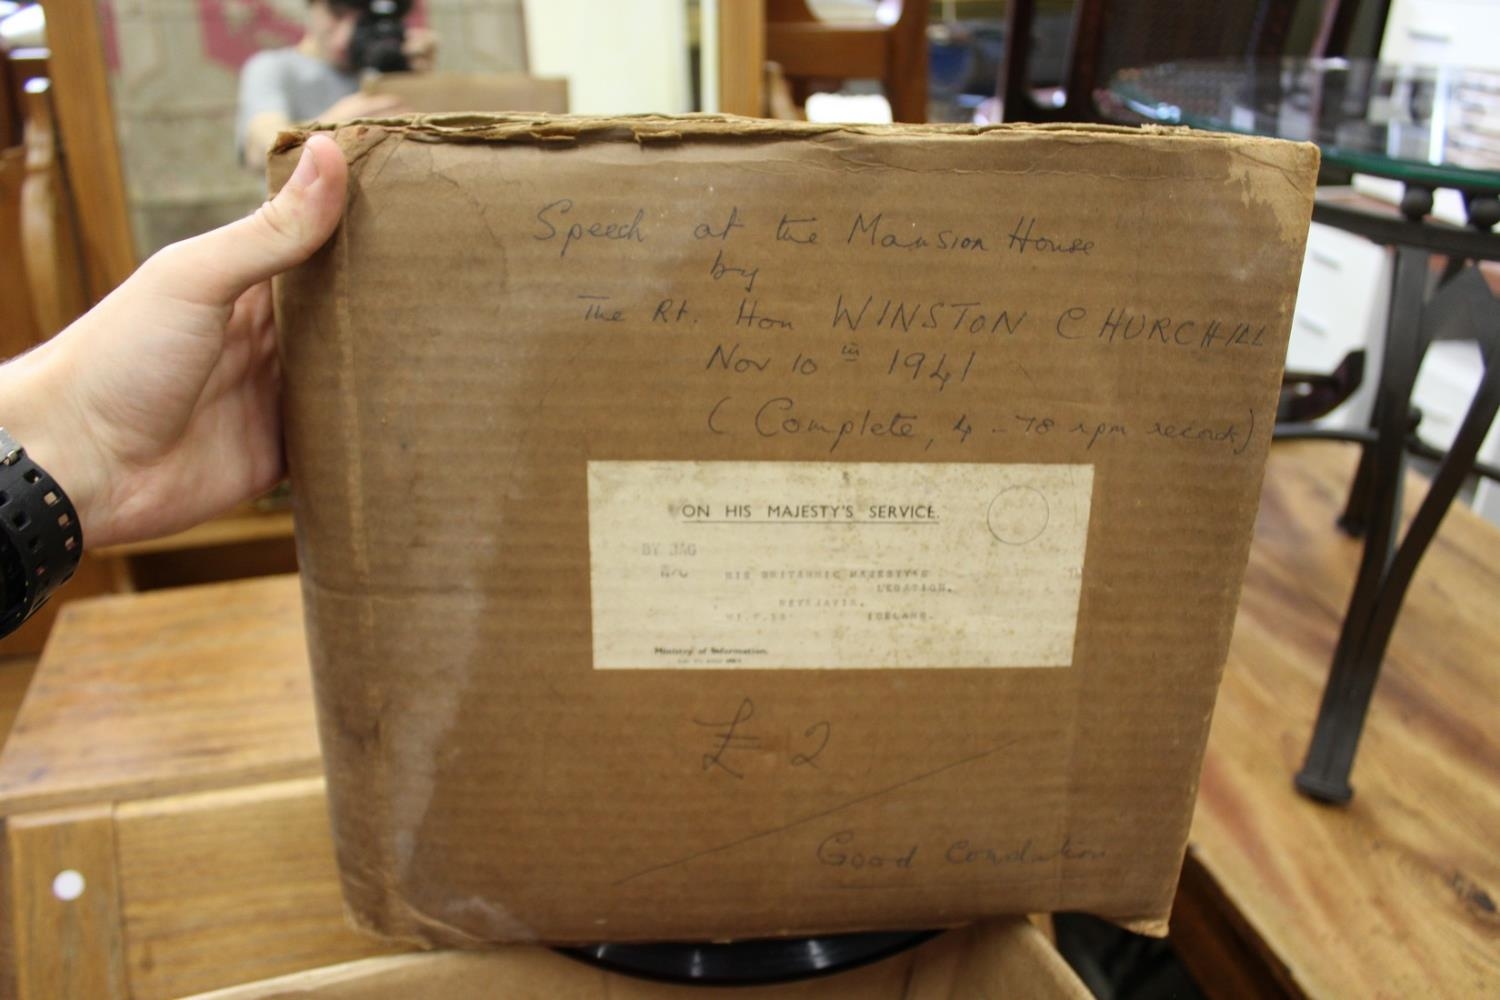 Speech at the Mansion House
by
The Rt. Hon WINSTON CHURCHILL
Nov 10th 1941
(Complete, 4 - 78 rpm records)
ON HIS MAJESTY'S SERVICE.
BY BAG
HIS BRITANNIC MAJESTY'S
LEGATION,
REYKJAVIK,
ICELAND.
Ministry of Information.
£2
Good Condition